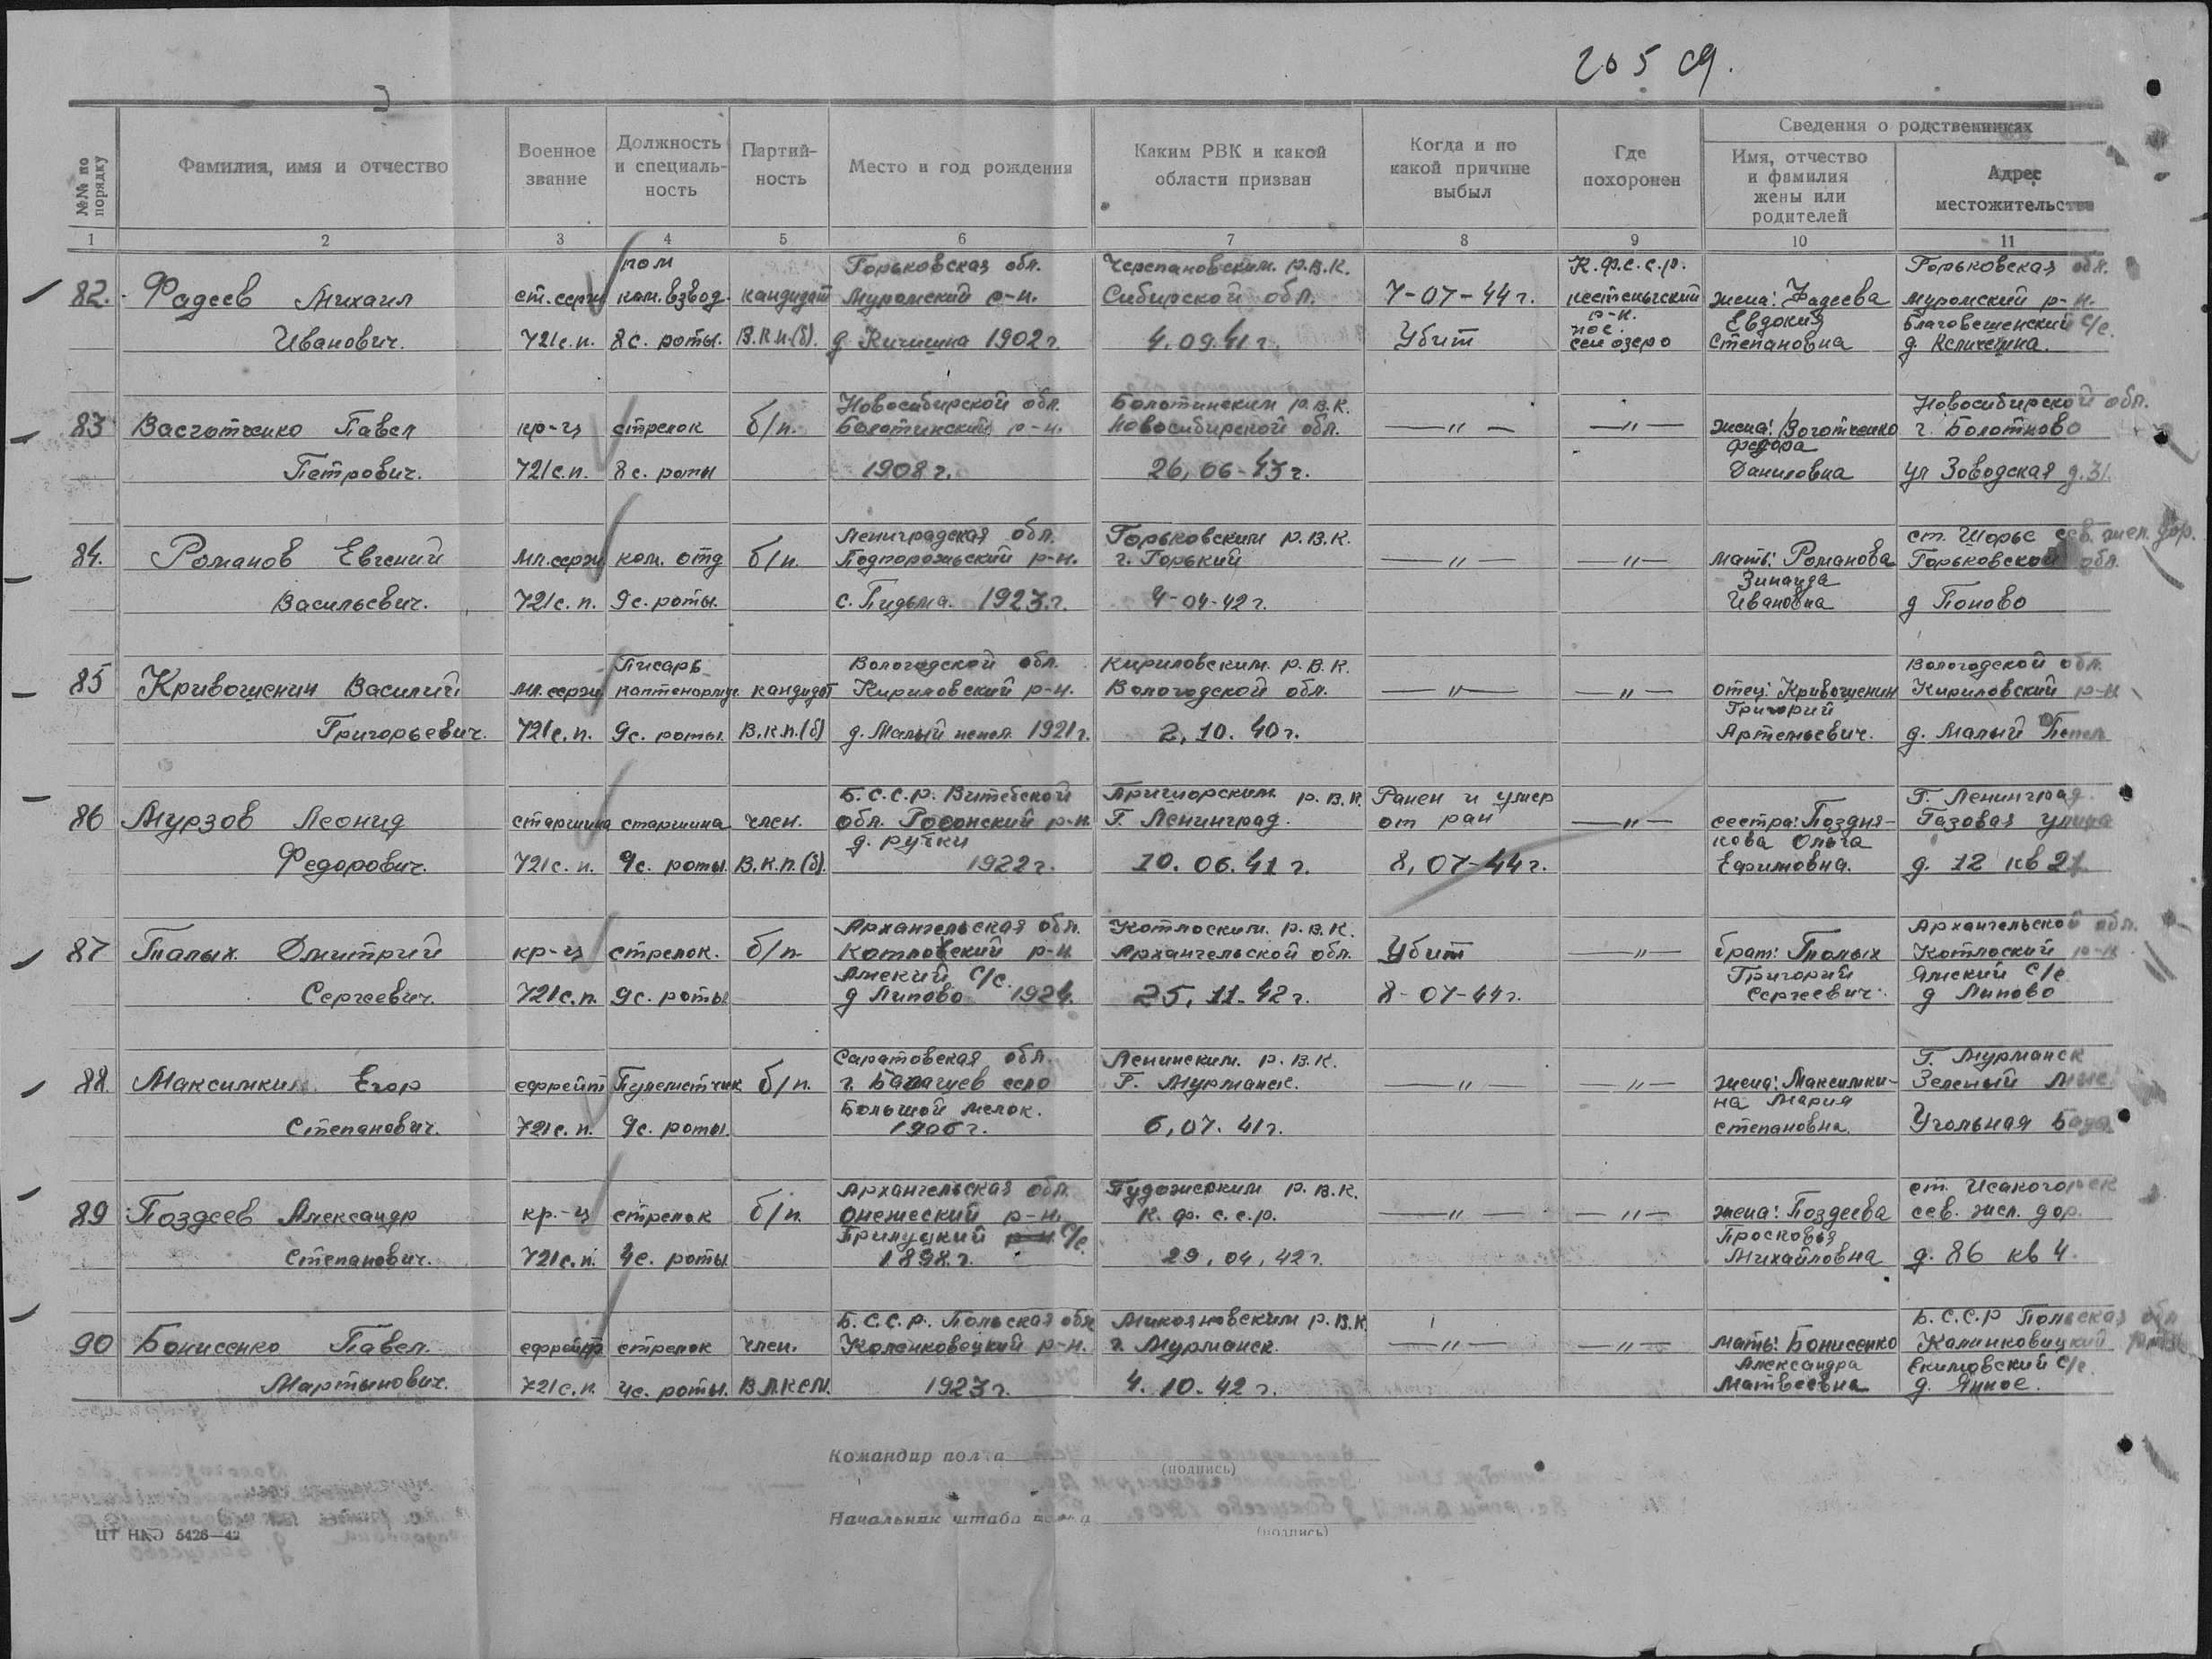 205 сд.
№№ по порядку
Фамилия, имя и отчество
Военное звание
Должность и специаль-ность
Партий-ность
Место и год рождения
Каким РВК и какой области призван
Когда и по какой причине выбыл
Где похоронен
Сведения о родственниках
Имя, отчество и фамилия жены или родителей
Адрес местожительства
1 2 3 4 5 6 7 8 9 10 11
пом Горьковская обл. Черепановским. р.в.к. К.ф.с.с.р. Горьковская обл.
82. Фадеев Михаил ст. серж ком. взвод. кандидат Муромский р-н. Сибирской обл. 7-07-44 г. кестеньгский жена: Фадеева Муромский р-н.
р-н. Евдокия Благовещенский с/с.
Иванович. 721 с.п. 8 с. роты. В.К.П.(б). д Кичишна 1902 г. 4.09.41 г. Убит пос. сен озеро Степановна д.
Новосибирской обл. Болотинским р.в.к. Новосибирской обл.
83 Васготченко Павел кр-ц стрелок б/п. Болотинский р-н. Новосибирской обл. —〃— —〃— жена: Воготченко г. Болотново
федора
Петрович. 721 с.п. 8 с. роты 1908 г. 26,06-43 г. Даниловна ул Зоводская д.31.
Ленинградская обл. Горьковским р.в.к. ст. Шорье сев. жел. дор.
84. Романов Евгений мл. серж ком. отд б/п. Подпорожьский р-н. г. Горький —〃— —〃— мать: Романова Горьковской обл.
Зинаида
Васильевич. 721 с.п. 9 с. роты. с. Пидьма. 1923. г. 4-04-42 г. Ивановна д Поново
Писарь Вологодской обл. Кириловским. р.в.к. Вологодской обл.
85 Кривошенин Василий мл. серж каптенормус кандидат Кириловский р-н. Вологодской обл. —〃— —〃— отец: Кривошенин Кириловский р-н
Григорий
Григорьевич. 721 с.п. 9 с. роты. В.К.П.(б) д. Малый пепел 1921 г. 2.10.40 г. Артемьевич. д. Малый Пепел
Б.С.С.Р. Витебской Приморским р.в.к. Ранен и умер Г. Ленинград
86 Мурзов Леонид старшина старшина член. обл. Росонский р-н. Г. Ленинград. от ран —〃— сестра: Поздня- Газовая улица
д. ручки кова Ольга
Федорович. 721 с.п. 9 с. роты. В.К.П.(б). 1922 г. 10.06.41 г. 8,07-44 г. Ефимовна. д. 12 кв 21
Архангельская обл. Котлоским. р.в.к. Архангельской обл.
87 Палых Дмитрий кр-ц стрелок. б/п Котловский р-н Архангельской обл. Убит —〃— брат: Полых Котлоский р-н
Амский с/с. Григорий Ямский с/с
Сергеевич. 721 с.п. 9 с. роты д Липово 1924. 25.11.42 г. 8-07-44 г. Сергеевич. д Липово
Саратовская обл. Ленинским. р.в.к. Г. Мурманск
88. Максимкин Егор ефрейт Пулеметчик б/п. г. Балащев село Г. Мурманск. —〃— —〃— жена: Максимки- Зеленый мыс.
Большой мелок. на Мария
Степанович. 721 с.п. 9 с. роты. 1906 г. 6,07.41 г. степановна. Угольная База
Архангельская обл. Пудожским р.в.к. ст. Исакогорск
89 Поздеев Александр кр.-ц стрелок б/п. онежеский р-н. К.ф.с.с.р. —〃— —〃— жена: Поздеева сев. жел. дор.
Прилуцкий р-н с/с. Просковья
Степанович. 721 с.п. 4 с. роты. 1898. г. 29,04,42 г. Михайловна д. 86 кв 4.
Б.С.С.Р. Польская обл Микояновским р.в.к Б.С.С.Р Польская обл
90 Бонисенко Павел. ефрейтр стрелок член. Коленковецкий р-н. г. Мурманск —〃— —〃— мать: Бонисенко Калинковицкий район
Александра Екимовский с/с.
Мартынович. 721 с.п. 4 с. роты. ВЛКСМ. 1923 г. 4.10.42 г. Матвеевна д. Яниое.
Командир полка
(подпись)
Начальник штаба полка
(подпись)
ЦТ НКО 5426—42